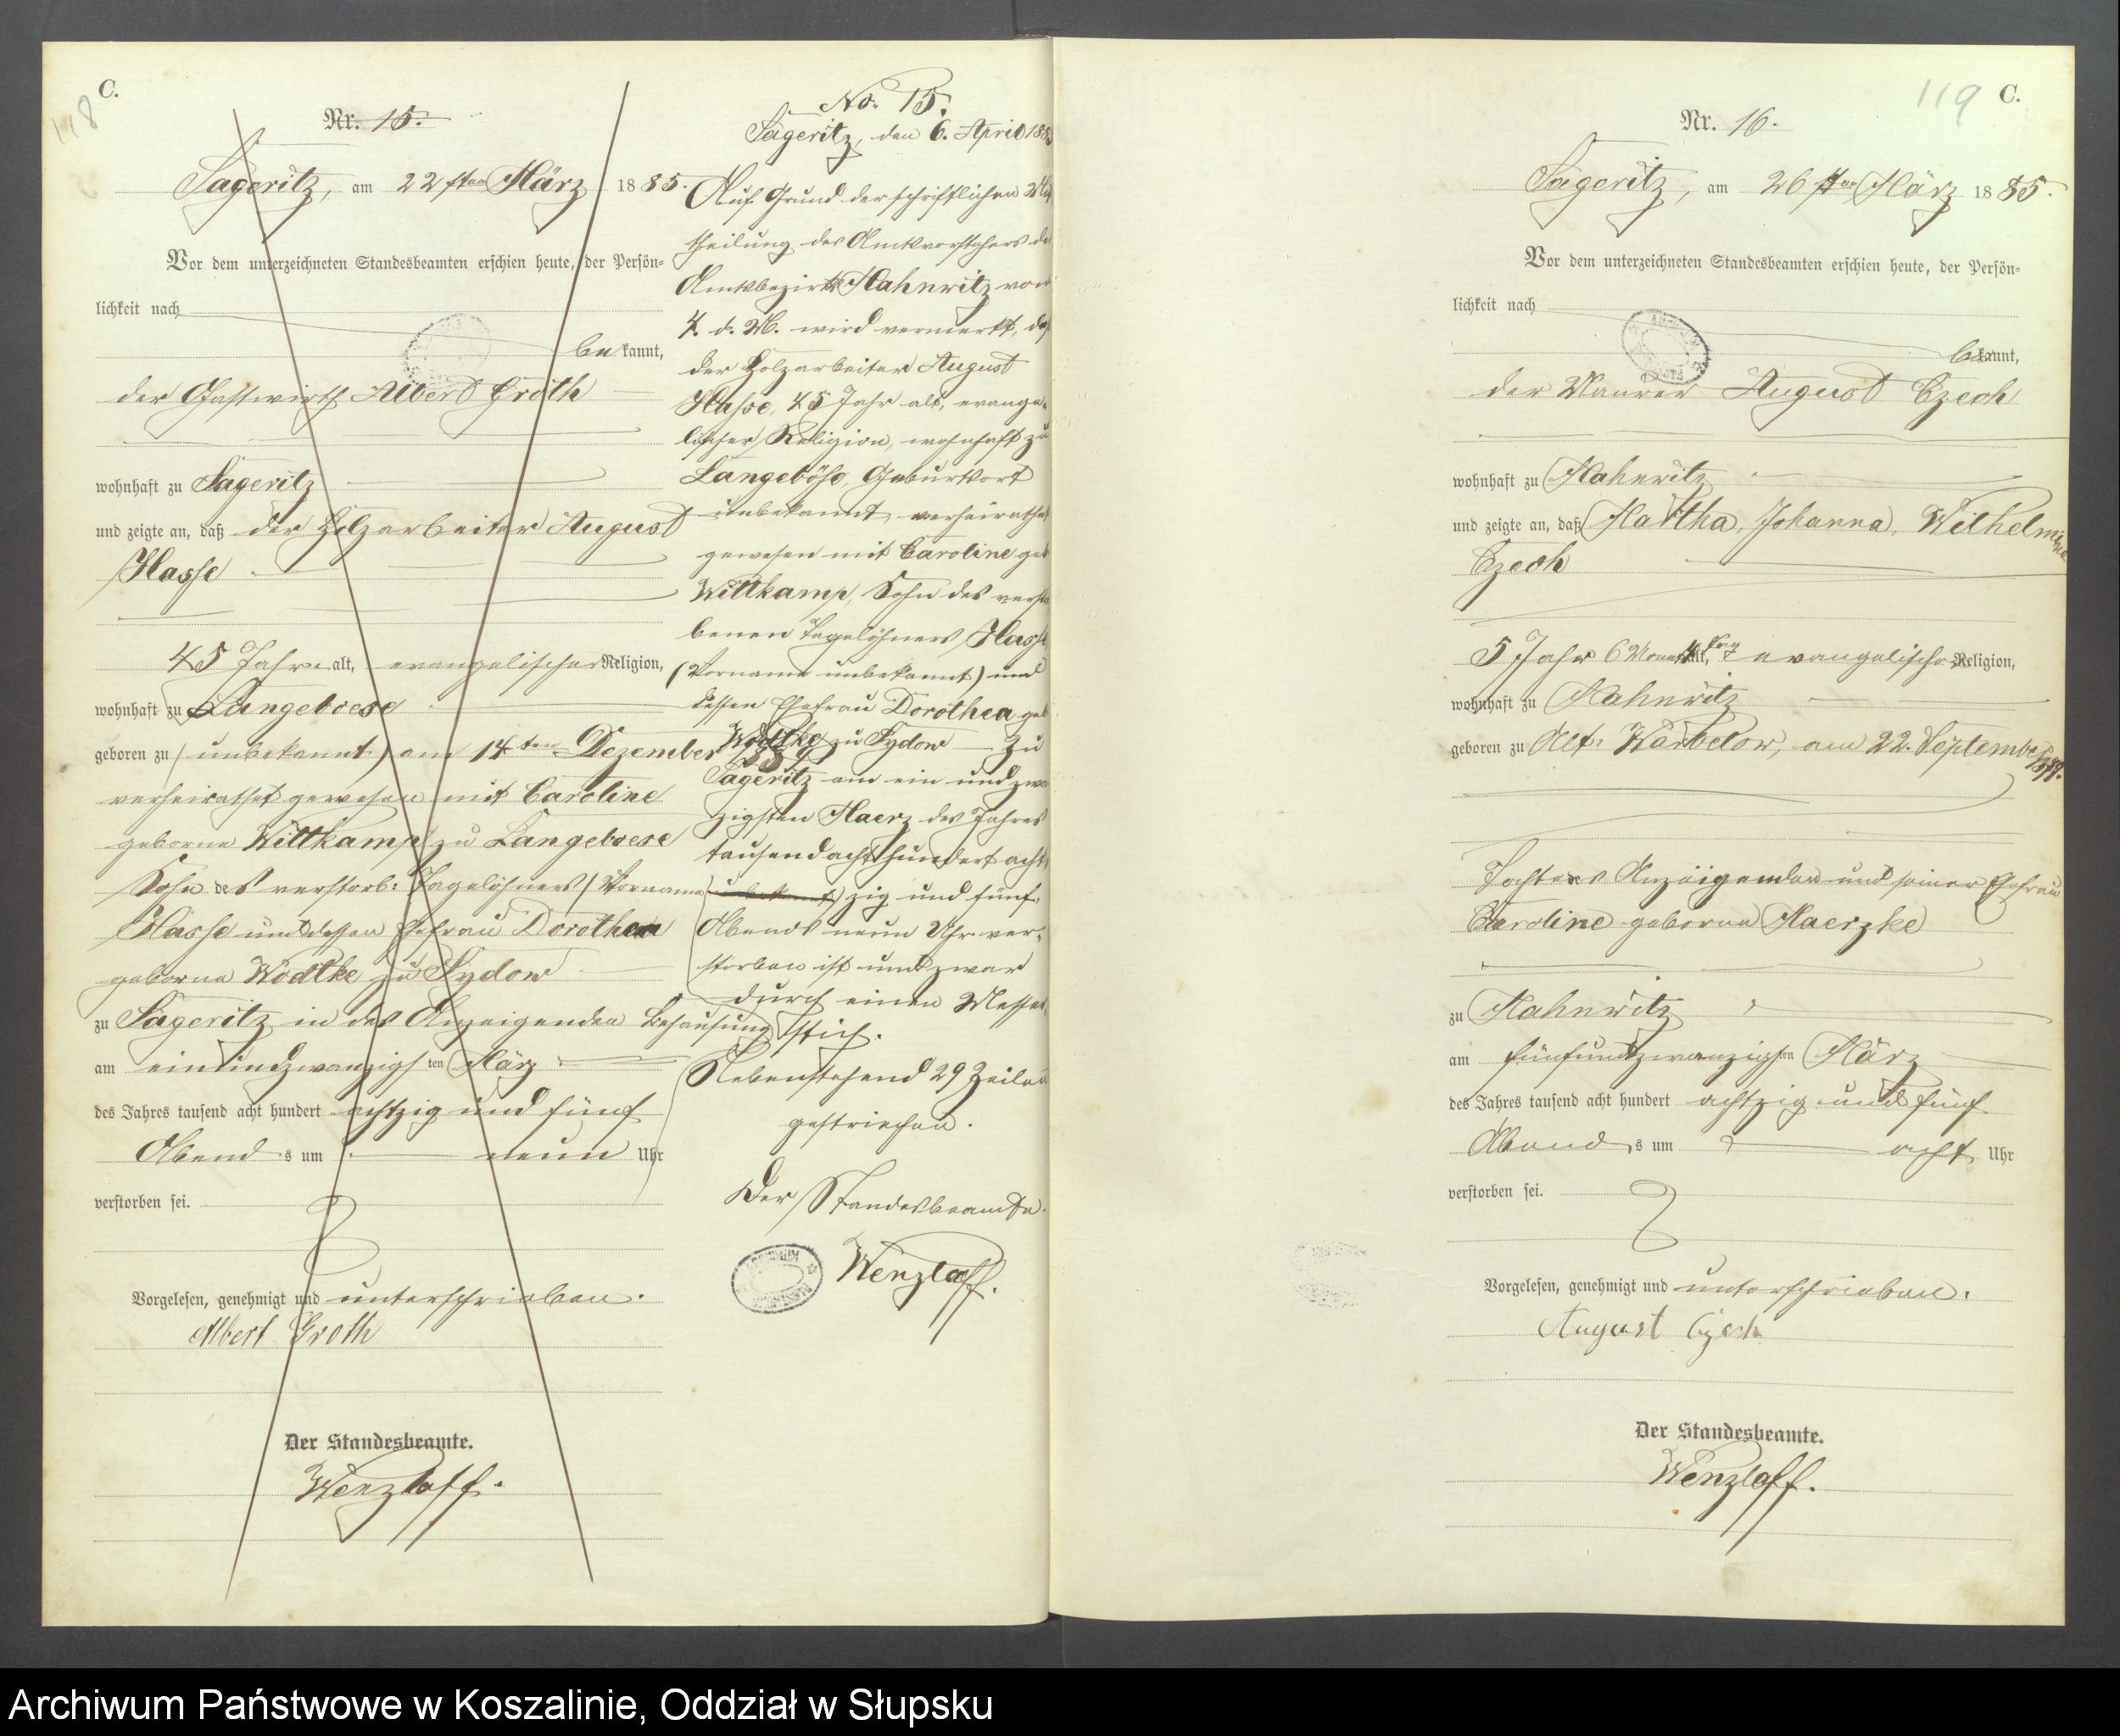 118
C.
Nr. 15.
Sageritz, am 22 ften März 1885.
Vor dem unterzeichneten Standesbeamten erschien heute, der Persön-
lichkeit nach
bekannt,
der Gastwirth Albert Groth
wohnhaft zu Sageritz
und zeigte an, daß der Holzarbeiter August
Hasse
45 Jahre alt, evangelischer Religion,
wohnhaft zu Langeboese
geboren zu (unbekannt) am 14ten Dezember
verheirathet gewesen mit Caroline
geborne Wittkamp zu Langeboese
Sohn des verstorb: Tagelöhners (Vorname unbekannt)
Hasse und dessen Ehefrau Dorothea
geborne Wodtke zu Sydow
zu Sageritz in des Anzeigenden Behausung
am einundzwanzigsten März
des Jahres tausend acht hundert achtzig und fünf
Abends um neun Uhr
verstorben sei.
Vorgelesen, genehmigt und unterschrieben.
Albert Groth
Der Standesbeamte.
Wenzlaff.
No. 15.
Sageritz, den 6. April 188
Auf Grund der schriftlichen Mit
theilung des Amtsvorstehers des
Amtsbezirks Mahnwitz vom
4. d. M. wird vermerkt, daß
der Holzarbeiter August
Hasse, 45 Jahr alt, evange-
lischer Religion, wohnhaft zu
Langeböse, Geburtsort
unbekannt, verheirathet
gewesen mit Caroline geb
Wittkamp, Sohn des verstor
benen Tagelöhners Hasse
(Vorname unbekannt) und
dessen Ehefrau Dorothea geb
Wodtke zu Sydow zu
Sageritz am ein und zwan
zigsten Maerz des Jahres
tausend acht hundert acht
zig und fünf
Abends neun Uhr ver-
storben ist und zwar
durch einen Messer
stich.
Nebenstehend 29 Zeilen
gestrichen.
Der Standesbeamte.
Wenzlaff.
119
C.
Nr. 16.
Sageritz, am 26 ften März 1885.
Vor dem unterzeichneten Standesbeamten erschien heute, der Persön-
lichkeit nach
bekannt,
der Maurer August Czech
wohnhaft zu Mahnwitz
und zeigte an, daß Martha, Johanna, Wilhelmine
Czech
5 Jahr 6 Monat 4 Tag alt, evangelischer Religion,
wohnhaft zu Mahnwitz
geboren zu Alt: Warbelow, am 22. September 1879.
Tochter des Anzeigenden und seiner Ehefrau
Caroline geborne Maerzke
zu Mahnwitz
am fünfundzwanzigsten März
des Jahres tausend acht hundert achtzig und fünf
Abends um acht Uhr
verstorben sei.
Vorgelesen, genehmigt und unterschrieben.
August Czech
Der Standesbeamte.
Wenzlaff.
Archiwum Państwowe w Koszalinie, Oddział w Słupsku